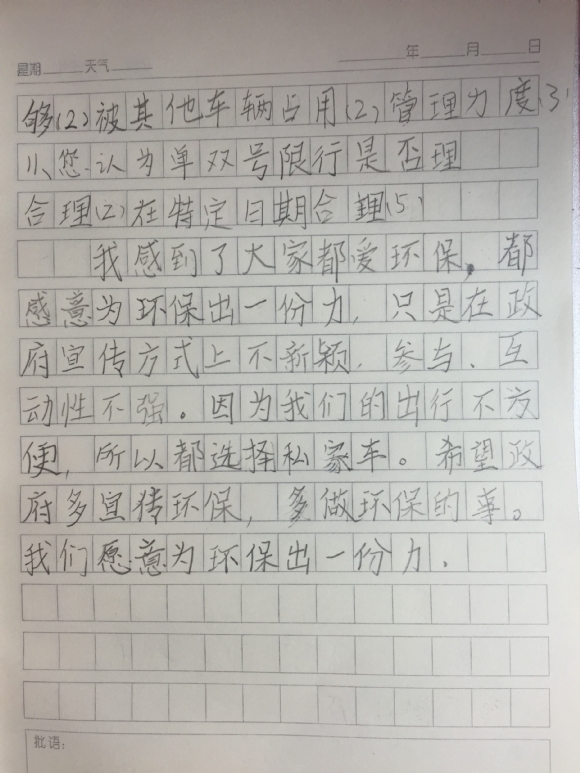 星期 天气 年 月 日
够(2)被其他车辆占用(2)管理力度(3)
11、您认为单双号限行是否理
合理(2)在特定日期合理(5)
我感到了大家都爱环保,都
感意为环保出一份力,只是在政
府宣传方式上不新颖,参与、互
动性不强。因为我们的出行不方
便,所以都选择私家车。希望政
府多宣传环保,多做环保的事。
我们愿意为环保出一份力.
批语: